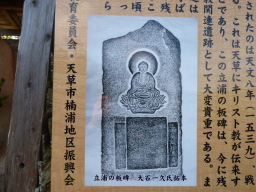 されたのは天文八年(一五三九)戦
る。これは天草にキリスト教が伝来す
こであり、この立浦の板碑は、今に残
教関連遺跡として大変貴重である。ま
こ残っ
育委員会・天草市楠浦地区振興会
立浦の板碑・大石一久氏拓本